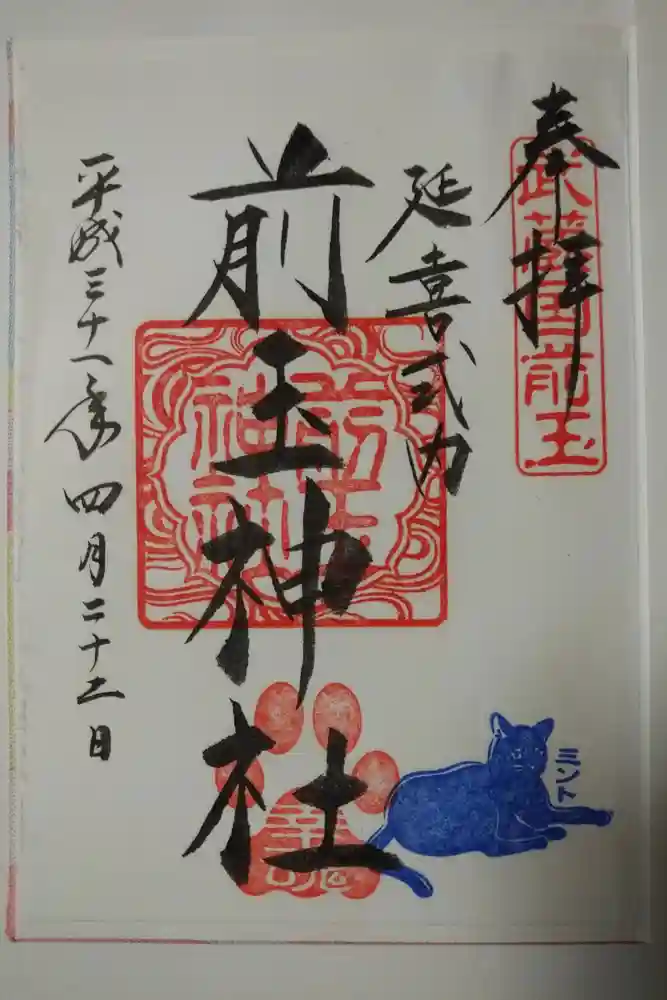 奉拝
武蔵国前玉
延喜式内
前玉神社
前玉
神社
幸魂
ミント
平成三十一年四月二十二日